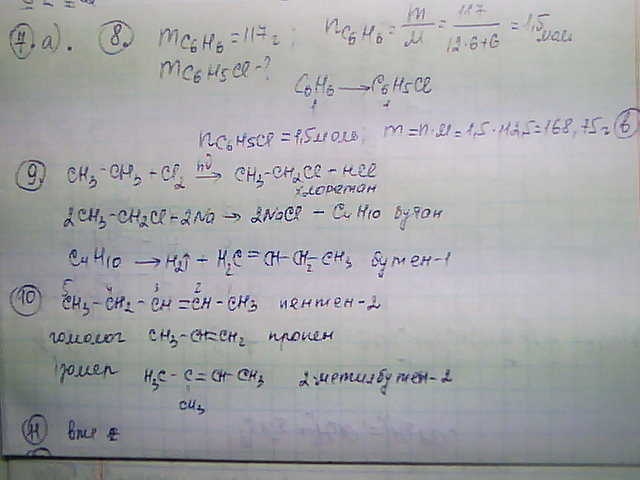 7. а). 8. mC6H6 = 117г; nC6H6 = m/M = 117/(12·6+6) = 1,5 моль
mC6H5Cl - ?
C6H6 → C6H5Cl
1 1
nC6H5Cl = 1,5 моль; m = n·M = 1,5·112,5 = 168,75г в
9. CH3-CH3 - Cl2 → CH3-CH2Cl - HCl
хлоретан
2CH3-CH2Cl + 2Na → 2NaCl - C4H10 бутан
C4H10 → H2↑ + H2C=CH-CH2-CH3 бутен-1
5 4 3 2 1
10 CH3-CH2-CH=CH-CH3 пентен-2
гомолог CH3-CH=CH2 пропен
ізомер H3C-C=CH-CH3 2-метилбутен-2
CH3
11 вже є